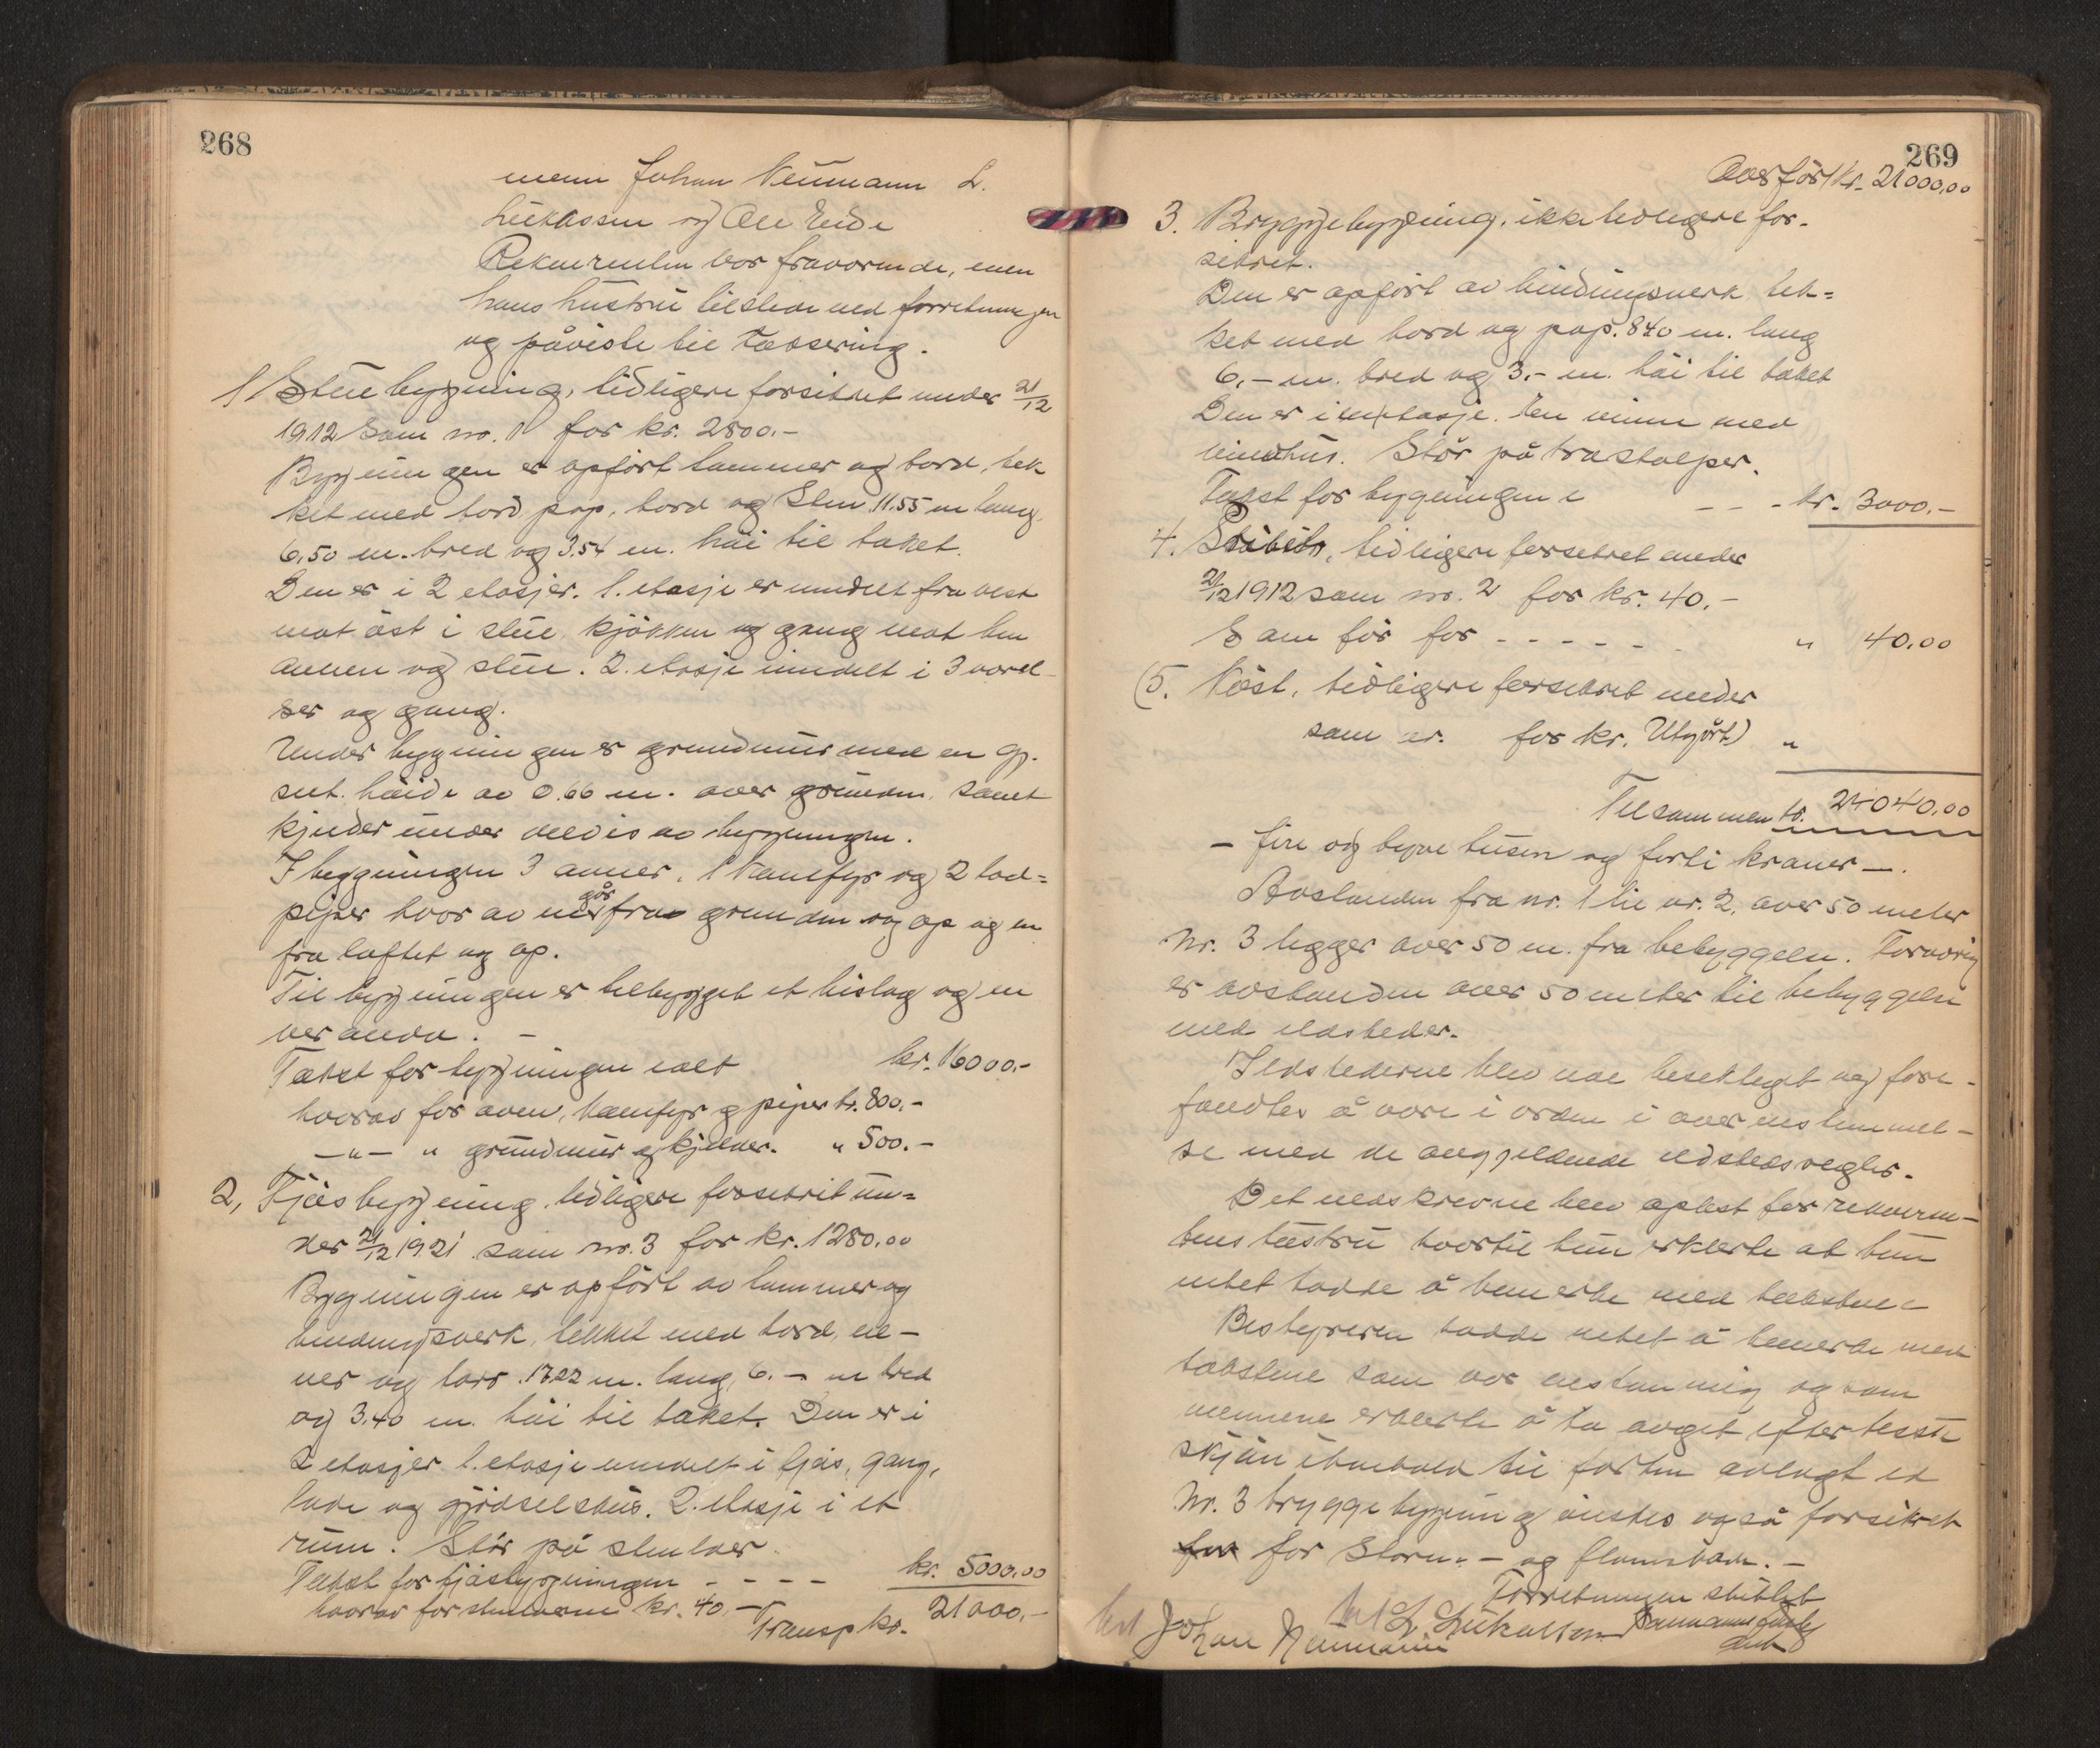 268
menn Johan Neumann L.
Lukassen og Ole Eide
Rekvirenten var fraværende, men
hans hustru tilstede ved forretningen
og påviste til taksering.
1/ Stuebygning, tidligere forsikret under 21/12
1912 som nr. 1 for kr. 2800.-
Bygningen er opført tømmer og bord, tek
ket med bord pap, bord og sten 11.55 m lang
6,50 m. bred og 3.54 m. høi til taket.
Den er i 2 etasjer. 1. etasje er inndelt fra vest
mot øst i stue, kjøkken og gang mot hin
annen og stue. 2. etasje inndelt i 3 værel
ser og gang.
Under bygningen er grundmur med en gj.
snt. høide av 0.66 m. over grunden, samt
kjelder under deler av bygningen.
I bygningen 3 ovner, 1 kamfyr og 2 tod=
piper hvor av en går fra grunden og op og en
fra loftet og op.
Til bygningen er tilbygget et bislag og en
veranda. -
Takst for bygningen ialt kr. 16000.-
hvorav for ovn, kamfyr og piper kr. 800.-
-"- " grundmur og kjelder. " 500.-
2, Fjøsbygning, tidligere forsikret un=
der 21/12 1921 som nr. 3 for kr. 1280.00
Bygningen er opført av tømmer og
bindingsverk, tekket med bord, ne-
ver og torv. 17.22 m. lang, 6.- m bred
og 3.40 m. høi til taket. Den er i
2 etasjer 1. etasje inndelt i fjøs, gang,
lade og gjødselshus. 2. etasje i et
rum. Står på stenter.
Takst for fjøsbygningen - - - - kr. 5000.00
hvorav for stenterne kr. 40.-
Transp kr. 21000.-
269
Overført kr. 21000,00
3. Bryggebygning, ikke tidligere for-
sikret.
Den er opført av bindingsverk, tek=
ket med bord og pap. 8.40 m. lang
6.- m. bred og 3.- m. høi til taket
Den er i en etasje. En vinne med
vindhus. Står på træstolper.
Takst for bygningen - - - kr. 3000.-
4. tidligere forsikret under
21/12 1912 som nr. 2 for kr. 40.-
Som før for - - - - - " 40.00
(5. Nøst, tidligere forsikret under
som nr. for kr. Utgått) "
Tilsammen kr. 24040.00
- fire og tyve tusen og forti kroner -.
Avstanden fra nr. 1 til nr. 2, over 50 meter
Nr. 3 ligger over 50 m. fra bebyggelse. Forøvrig
er avstanden over 50 meter til bebyggelse
med ildsteder.
Ildstederne blev nøie besiktiget og fore-
fandtes å være i orden i overensstemmel-
se med de angjeldende ildstedsregler.
Det nedskrevne blev oplest for rekviren-
tens hustru hvortil hun erklærte at hun
intet hadde å bemerke med takstene
Bestyreren hadde intet å bemerke med
takstene som var enstemmig og som
mennene erklærte å ha avgit efter beste
skjøn i henhold til før den avlagt ed
Nr. 3 bryggebygning ønskes også forsikret
for for storm - og flomskade. -
Forretningen sluttet
Johan Neumann L Lukassen